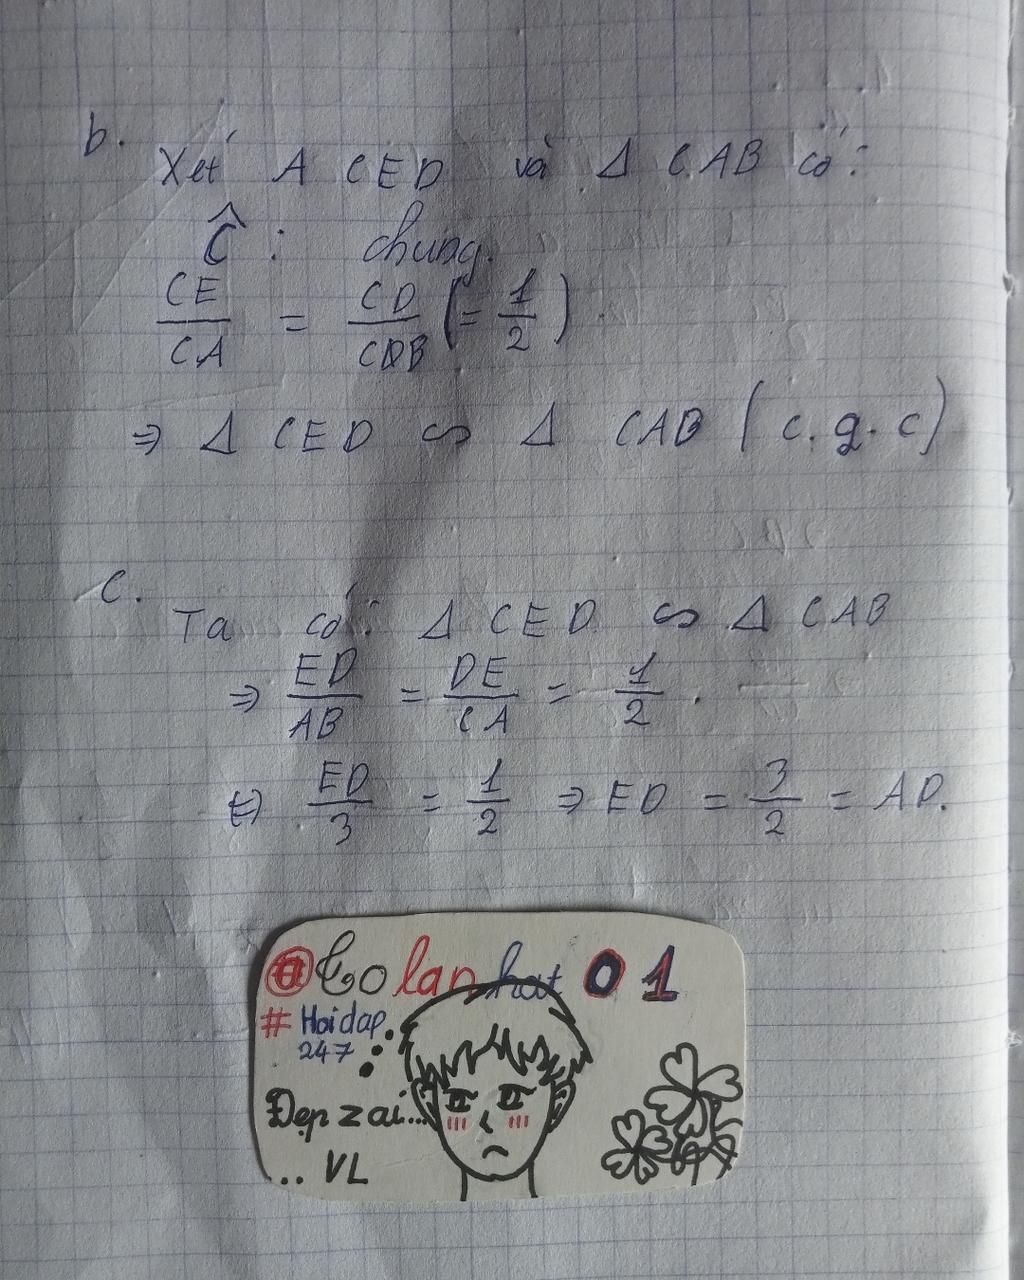 b.
Xét Δ CED và Δ CAB có:
Ĉ : chung.
CE/CA = CD/CB (= 1/2)
⇒ Δ CED ∽ Δ CAB (c.g.c)
c.
Ta có: Δ CED ∽ Δ CAB
⇒ ED/AB = DE/CA = 1/2 .
⇔ ED/3 = 1/2 ⇒ ED = 3/2 = AD.
@Colanhat01
# Hoidap
247
Đẹp zai...
.. VL